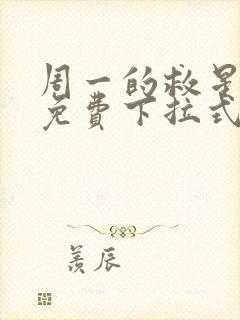 周一的救星
免费下拉式
羡辰